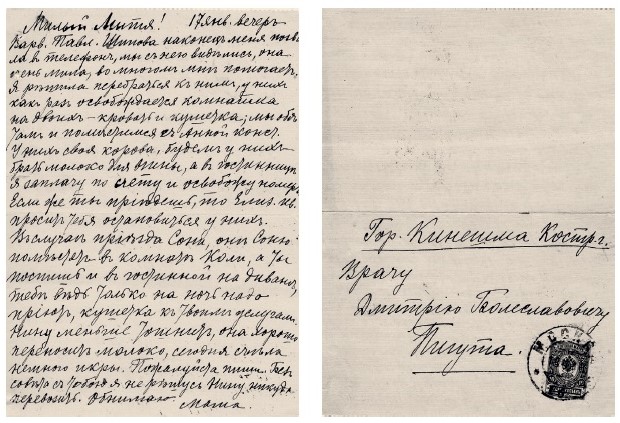 Милый Митя! 17 янв. вечеръ
Варв. Павл. Шипова наконецъ меня позва
ла въ телефонъ, мы съ нею видѣлись, она
очень мила, во многомъ мнѣ помогаетъ.
Я рѣшила перебраться къ нимъ, у нихъ
какъ разъ освобождается комнатка
на двоихъ – кровать и кушетка; мы обѣ
тамъ и помѣстимся съ Анной Конст.
У нихъ своя корова, будемъ у нихъ
брать молоко для Нины, а въ гостинницѣ
я заплачу по счету и освобожу номеръ.
Если же ты пріѣдешь, то Елиз. Ив.
проситъ тебя остановиться у нихъ.
Въ случаѣ пріѣзда Сони, они Соню
помѣстятъ въ комнатѣ Коли, а ты
поспишь и въ гостинной на диванѣ,
тебѣ вѣдь только на ночь надо
пріютъ, кушетка къ твоимъ услугамъ.
Нину меньше тошнитъ, она хорошо
переноситъ молоко, сегодня съѣла
немного икры. Пожалуйста пиши. Безъ
совѣта съ тобой я не рѣшусь Нину никуда
перевозить. Обнимаю. Мама.
Гор. Кинешма Костр. г.
Врачу
Дмитрію Болеславовичу
Пигута
МОСКВА